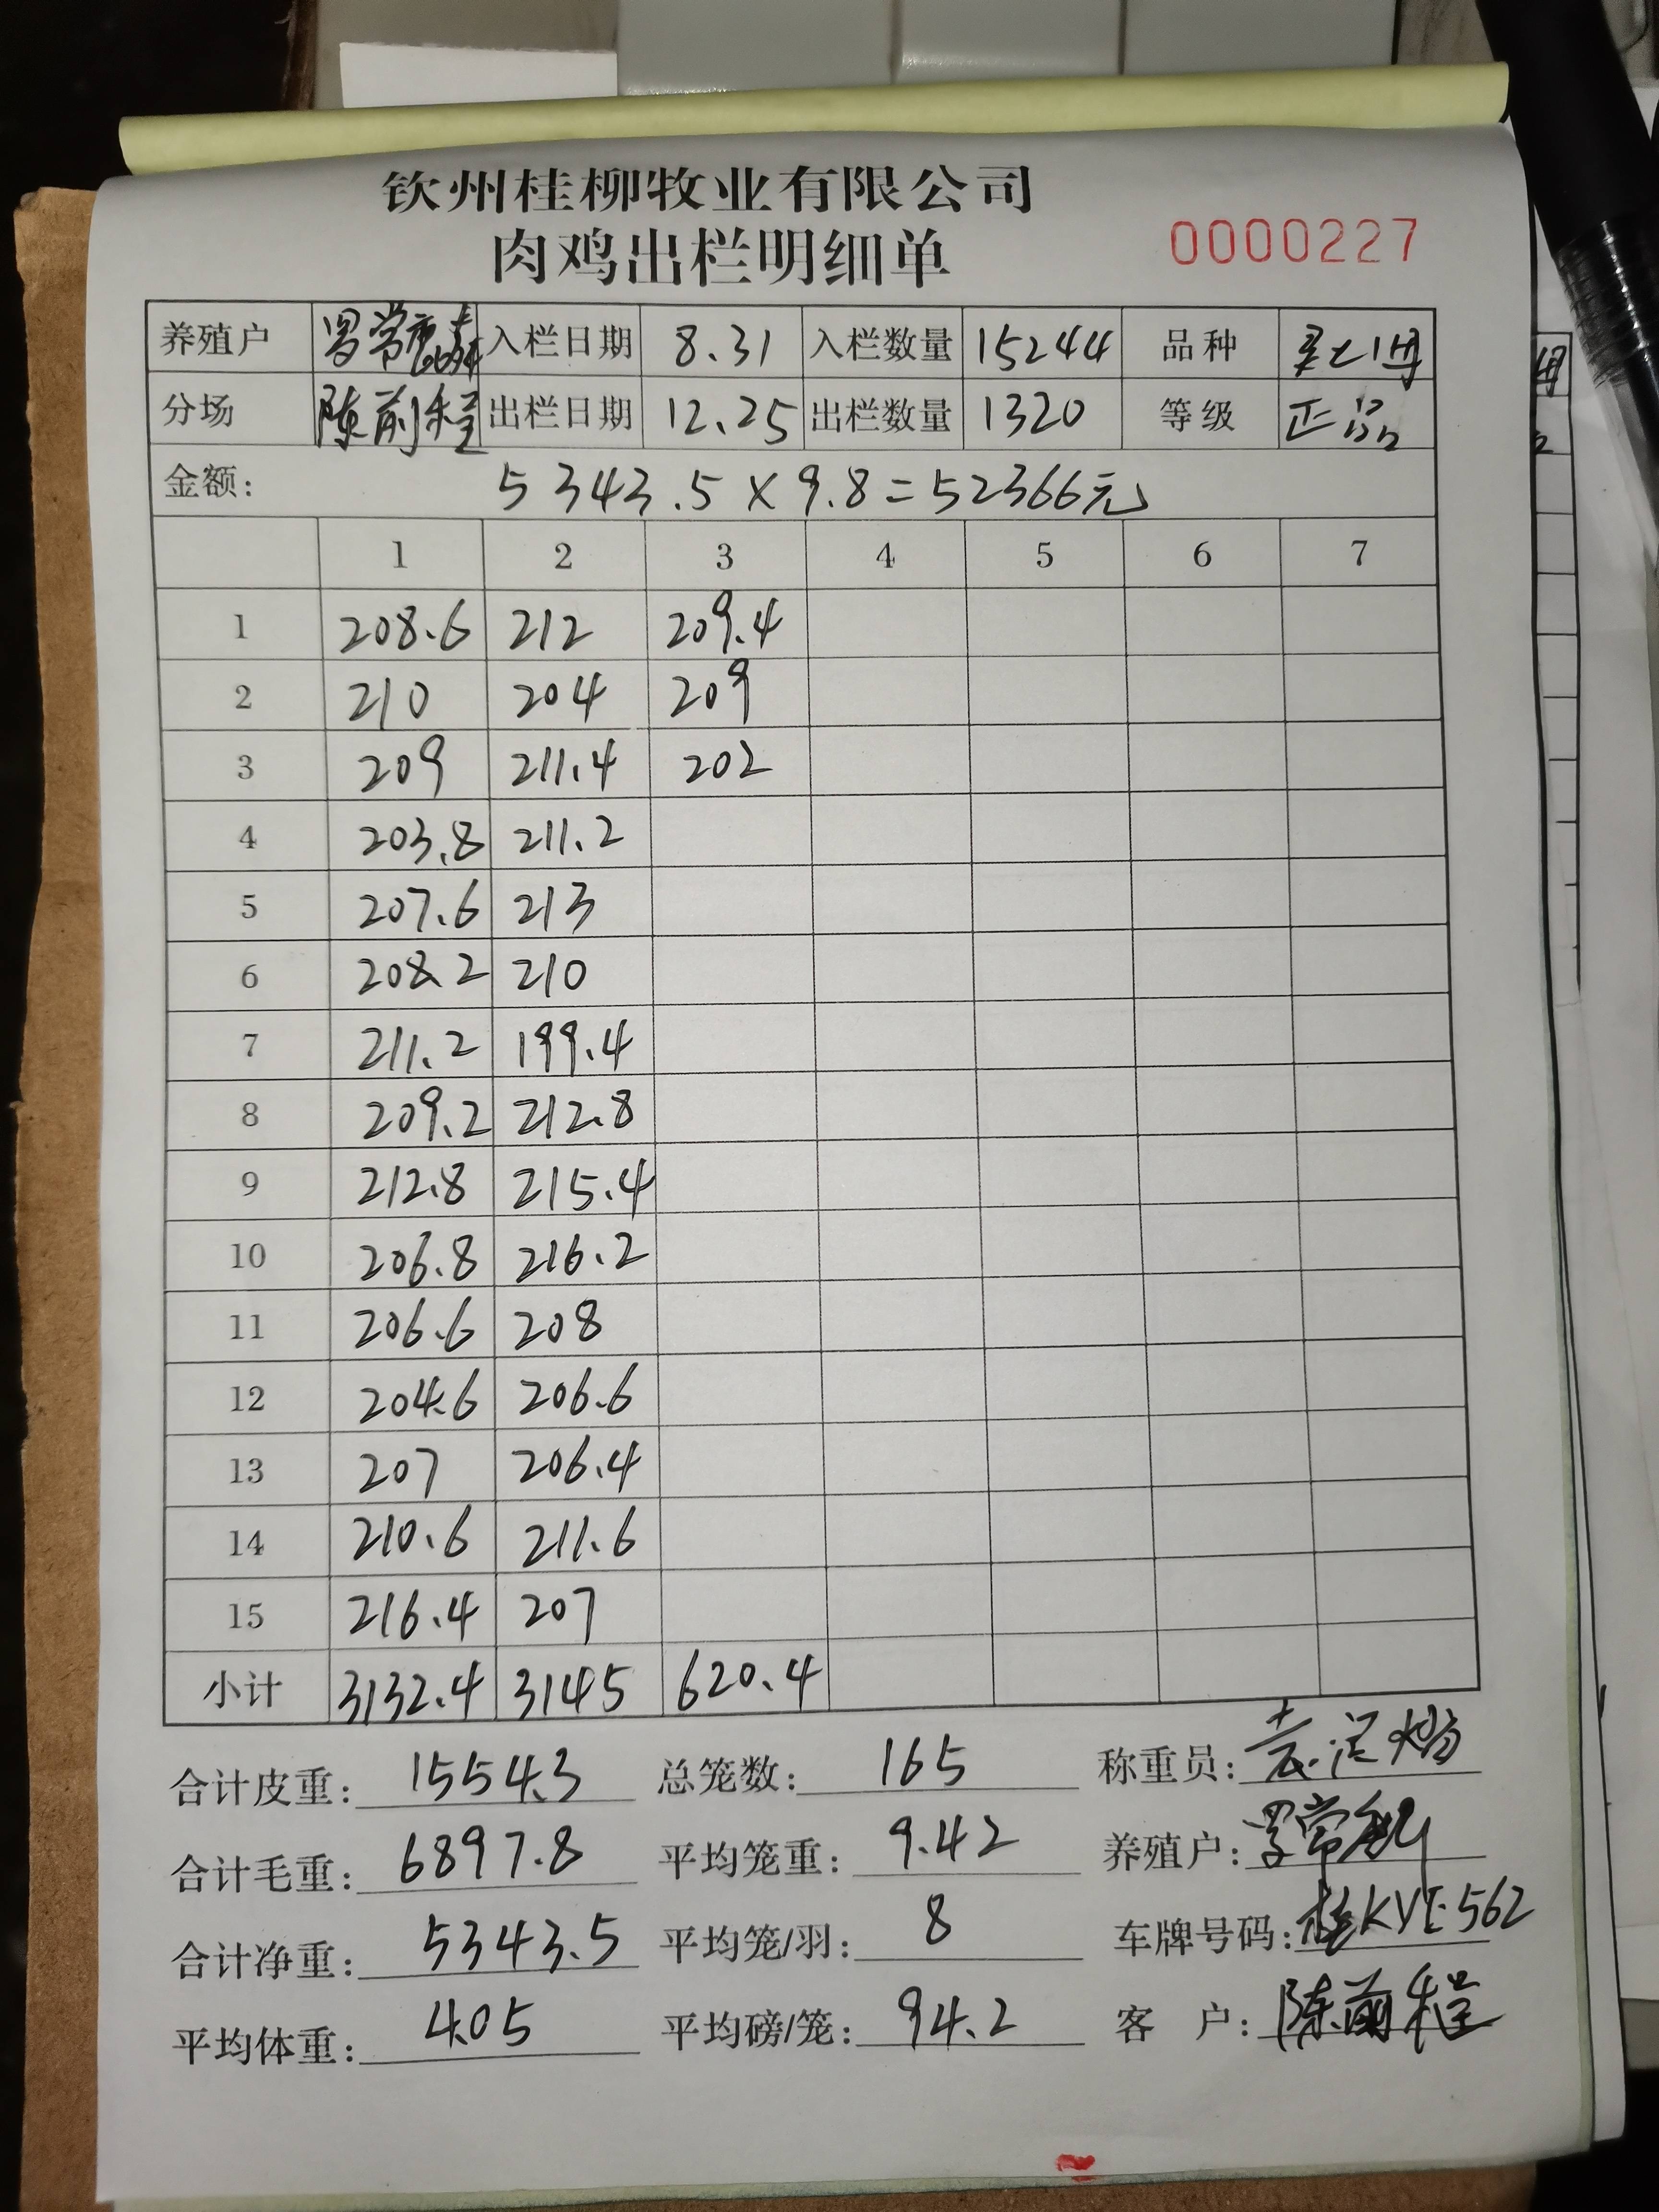 钦州桂柳牧业有限公司
肉鸡出栏明细单 0000227
养殖户 入栏日期 8.31 入栏数量 15244 品种
分场 陈前程 出栏日期 12.25 出栏数量 1320 等级 正品
金额: 5343.5×9.8=52366元
1 2 3 4 5 6 7
1 208.6 212 209.4
2 210 204 209
3 209 211.4 202
4 203.8 211.2
5 207.6 213
6 208.2 210
7 211.2 199.4
8 209.2 212.8
9 212.8 215.4
10 206.8 216.2
11 206.6 208
12 204.6 206.6
13 207 206.4
14 210.6 211.6
15 216.4 207
小计 3132.4 3145 620.4
合计皮重: 1554.3 总笼数: 165 称重员:
合计毛重: 6897.8 平均笼重: 9.42 养殖户:
合计净重: 5343.5 平均笼/羽: 8 车牌号码: 桂KVE562
平均体重: 4.05 平均磅/笼: 94.2 客 户: 陈前程